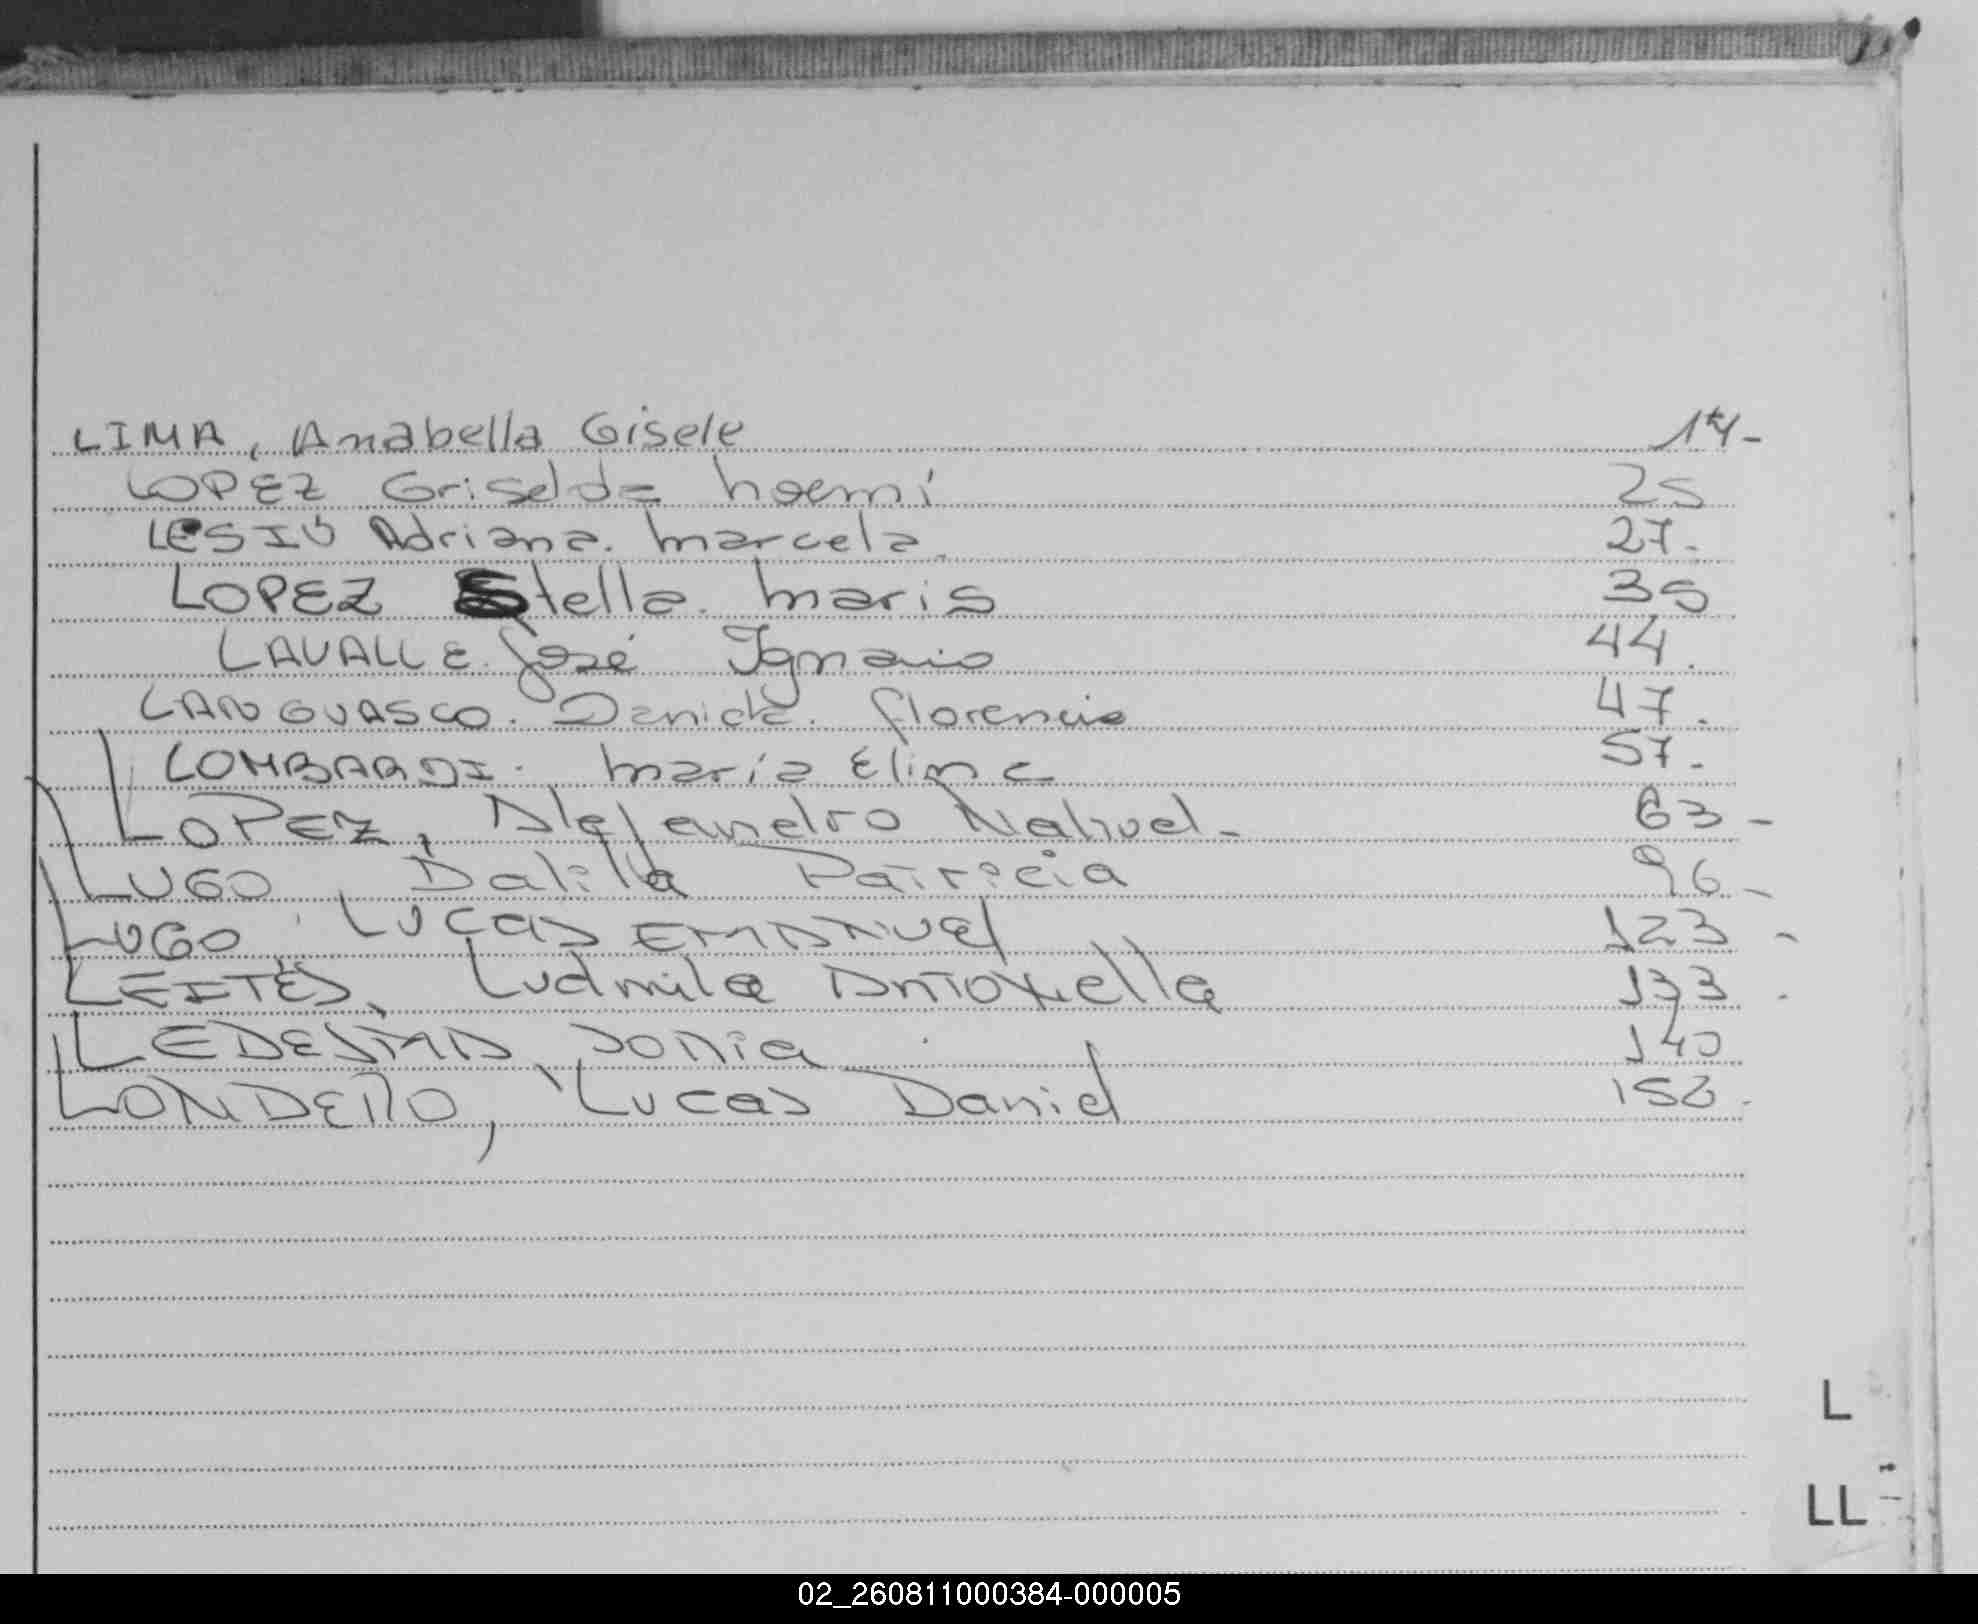 LIMA, Anabella Gisele 14-
LOPEZ Griselda Noemí 25
LESIU Adriana. Marcela. 27.
LOPEZ Stella. Maris 35
LAVALLE. José Ignacio 44.
LANGUASCO. Daniela. Florencia 47.
LOMBARDI. María Elina 57.
LOPEZ, Alejandro Nahuel- 63-
LUGO, Dalila Patricia 96-
LUGO, LUCAS EMANUEL 123-
LEITES, Ludmila Antonella 133-
LEDESMA, Sonia 140
LONDERO, Lucas Daniel
L
LL
02_260811000384-000005